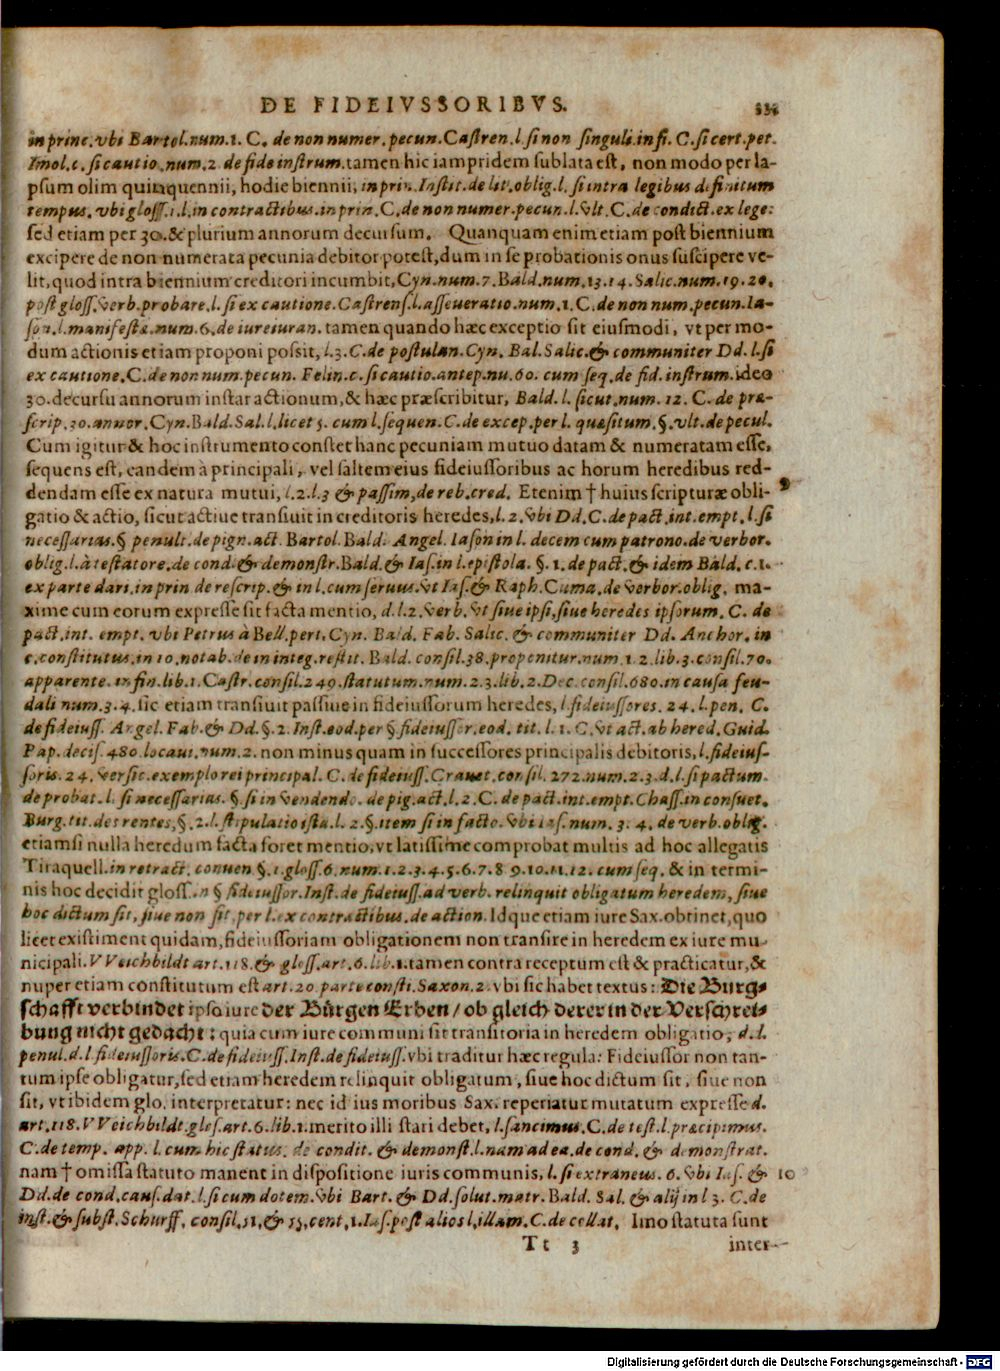 DE FIDEIVSSORIBVS.
in princ. vbi Bartol. num. 1. C. de non numer. pecun. Castren. l. si non singuli. in fi. C. si cert. pet.
Imol. c. si cautio. num. 2. de fide instrum. tamen hic iampridem sublata est, non modo per la-
psum olim quinquennii, hodie biennii, in prin. Instit. de lit. oblig. l. si intra legibus definitum
tempus. vbi gloss. 1. l. in contractibus. in prin. C. de non numer. pecun. l. vlt. C. de condict. ex lege:
sed etiam per 30. & plurium annorum decursum. Quanquam enim etiam post biennium
excipere de non numerata pecunia debitor potest, dum in se probationis onus suscipere ve-
lit, quod intra biennium creditori incumbit, Cyn. num. 7. Bald. num. 13. 14. Salic. num. 19. 20.
post gloss. verb. probare. l. si ex cautione. Castrens. l. asseueratio. num. 1. C. de non num. pecun. Ia-
son. l. manifesta. num. 6. de iureiuran. tamen quando hæc exceptio sit eiusmodi, vt per mo-
dum actionis etiam proponi possit, l. 3. C. de postulan. Cyn. Bal. Salic. & communiter Dd. l. si
ex cautione. C. de non num. pecun. Felin. c. si cautio. antep. nu. 60. cum seq. de fid. instrum. ideo
30. decursu annorum instar actionum, & hæc præscribitur, Bald. l. sicut. num. 12. C. de præ-
scrip. 30. annor. Cyn. Bald. Sal. l. licet 5. cum l. sequen. C. de excep. per l. quæsitum. §. vlt. de pecul.
Cum igitur & hoc instrumento constet hanc pecuniam mutuo datam & numeratam esse,
sequens est, eandem à principali, vel saltem eius fideiussoribus ac horum heredibus red-
dendam esse ex natura mutui, l. 2. l. 3 & passim, de reb. cred. Etenim † huius scripturæ obli- 9
gatio & actio, sicut actiue transiuit in creditoris heredes, l. 2. vbi Dd. C. de pact. int. empt. l. si
necessarias. § penult. de pign. act. Bartol. Bald. Angel. Iason in l. decem cum patrono. de verbor.
oblig. l. à testatore. de cond. & demonstr. Bald. & Ias. in l. epistola. §. 1. de pact. & idem Bald. c. 1.
ex parte dari. in prin de rescrip. & in l. cum seruus. vt Ias. & Raph. Cuma. de verbor. oblig. ma-
xime cum eorum expresse sit facta mentio, d. l. 2. verb. vt siue ipsi, siue heredes ipsorum. C. de
pact. int. empt. vbi Petrus à Bell. pert. Cyn. Bald. Fab. Salic. & communiter Dd. Anchor. in
c. constitutus. in 10. notab. de in integ. restit. Bald. consil. 38. proponitur. num. 1. 2. lib. 3. consil. 70.
apparente. in fin. lib. 1. Castr. consil. 249. statutum. num. 2. 3. lib. 2. Dec. consil. 680. in causa feu-
dali num. 3. 4. sic etiam transiuit passiue in fideiussorum heredes, l. fideiussores. 24. l. pen. C.
de fideiuss. Angel. Fab. & Dd. §. 2. Inst. eod. per § fideiussor. eod. tit. l. 1. C. vt act. ab hered. Guid.
Pap. decis. 480. locaui. num. 2. non minus quam in successores principalis debitoris, l. fideius-
soris. 24. versic. exemplo rei principal. C. de fideiuss. Crauet. consil. 272. num. 2. 3. d. l. si pactum.
de probat. l. si necessarias. §. si in vendendo. de pig. act. l. 2. C. de pact. int. empt. Chass. in consuet.
Burg. tit. des rentes, §. 2. l. stipulatio ista. l. 2. §. item si in facto. vbi Ias. num. 3. 4. de verb. oblig.
etiamsi nulla heredum facta foret mentio, vt latissime comprobat multis ad hoc allegatis
Tiraquell. in retract. conuen §. 1 gloss. 6. num. 1. 2. 3. 4. 5. 6. 7. 8 9. 10. 11. 12. cum seq. & in termi-
nis hoc decidit gloss. in § fideiussor. Inst. de fideiuss. ad verb. relinquit obligatum heredem, siue
hoc dictum sit, siue non sit, per l. ex contractibus. de action. Idque etiam iure Sax. obtinet, quo
licet existiment quidam, fideiussoriam obligationem non transire in heredem ex iure mu-
nicipali. VVeichbildt art. 118. & gloss. art. 6. lib. 1. tamen contra receptum est & practicatur, &
nuper etiam constitutum est art. 20. parte consti. Saxon. 2. vbi sic habet textus: Die Burg-
schafft verbindet ipso iure der Bürgen Erben / ob gleich derer in der Verschrei-
bung nicht gedacht: quia cum iure communi sit transitoria in heredem obligatio, d. l.
penul. d. l fideiussoris. C. de fideiuss. Inst. de fideiuss. vbi traditur hæc regula: Fideiussor non tan-
tum ipse obligatur, sed etiam heredem relinquit obligatum, siue hoc dictum sit, siue non
sit, vt ibidem glo. interpretatur: nec id ius moribus Sax. reperiatur mutatum expresse d.
art. 118. VVeichbildt. glos. art. 6. lib. 1. merito illi stari debet, l. sancimus. C. de test. l. præcipimus.
C. de temp. app. l. cum hic status. de condit. & demonst. l. nam ad ea. de cond. & demonstrat.
nam † omissa statuto manent in dispositione iuris communis, l. si extraneus. 6. vbi Ias. & 10
Dd. de cond. caus. dat. l. si cum dotem. vbi Bart. & Dd. solut. matr. Bald. Sal. & alij in l 3. C. de
inst. & subst. Schurff. consil. 51. & 55. cent. 1. Ias. post alios l. illam. C. de collat. Imo statuta sunt
Tt 3 inter-
Digitalisierung gefördert durch die Deutsche Forschungsgemeinschaft - DFG